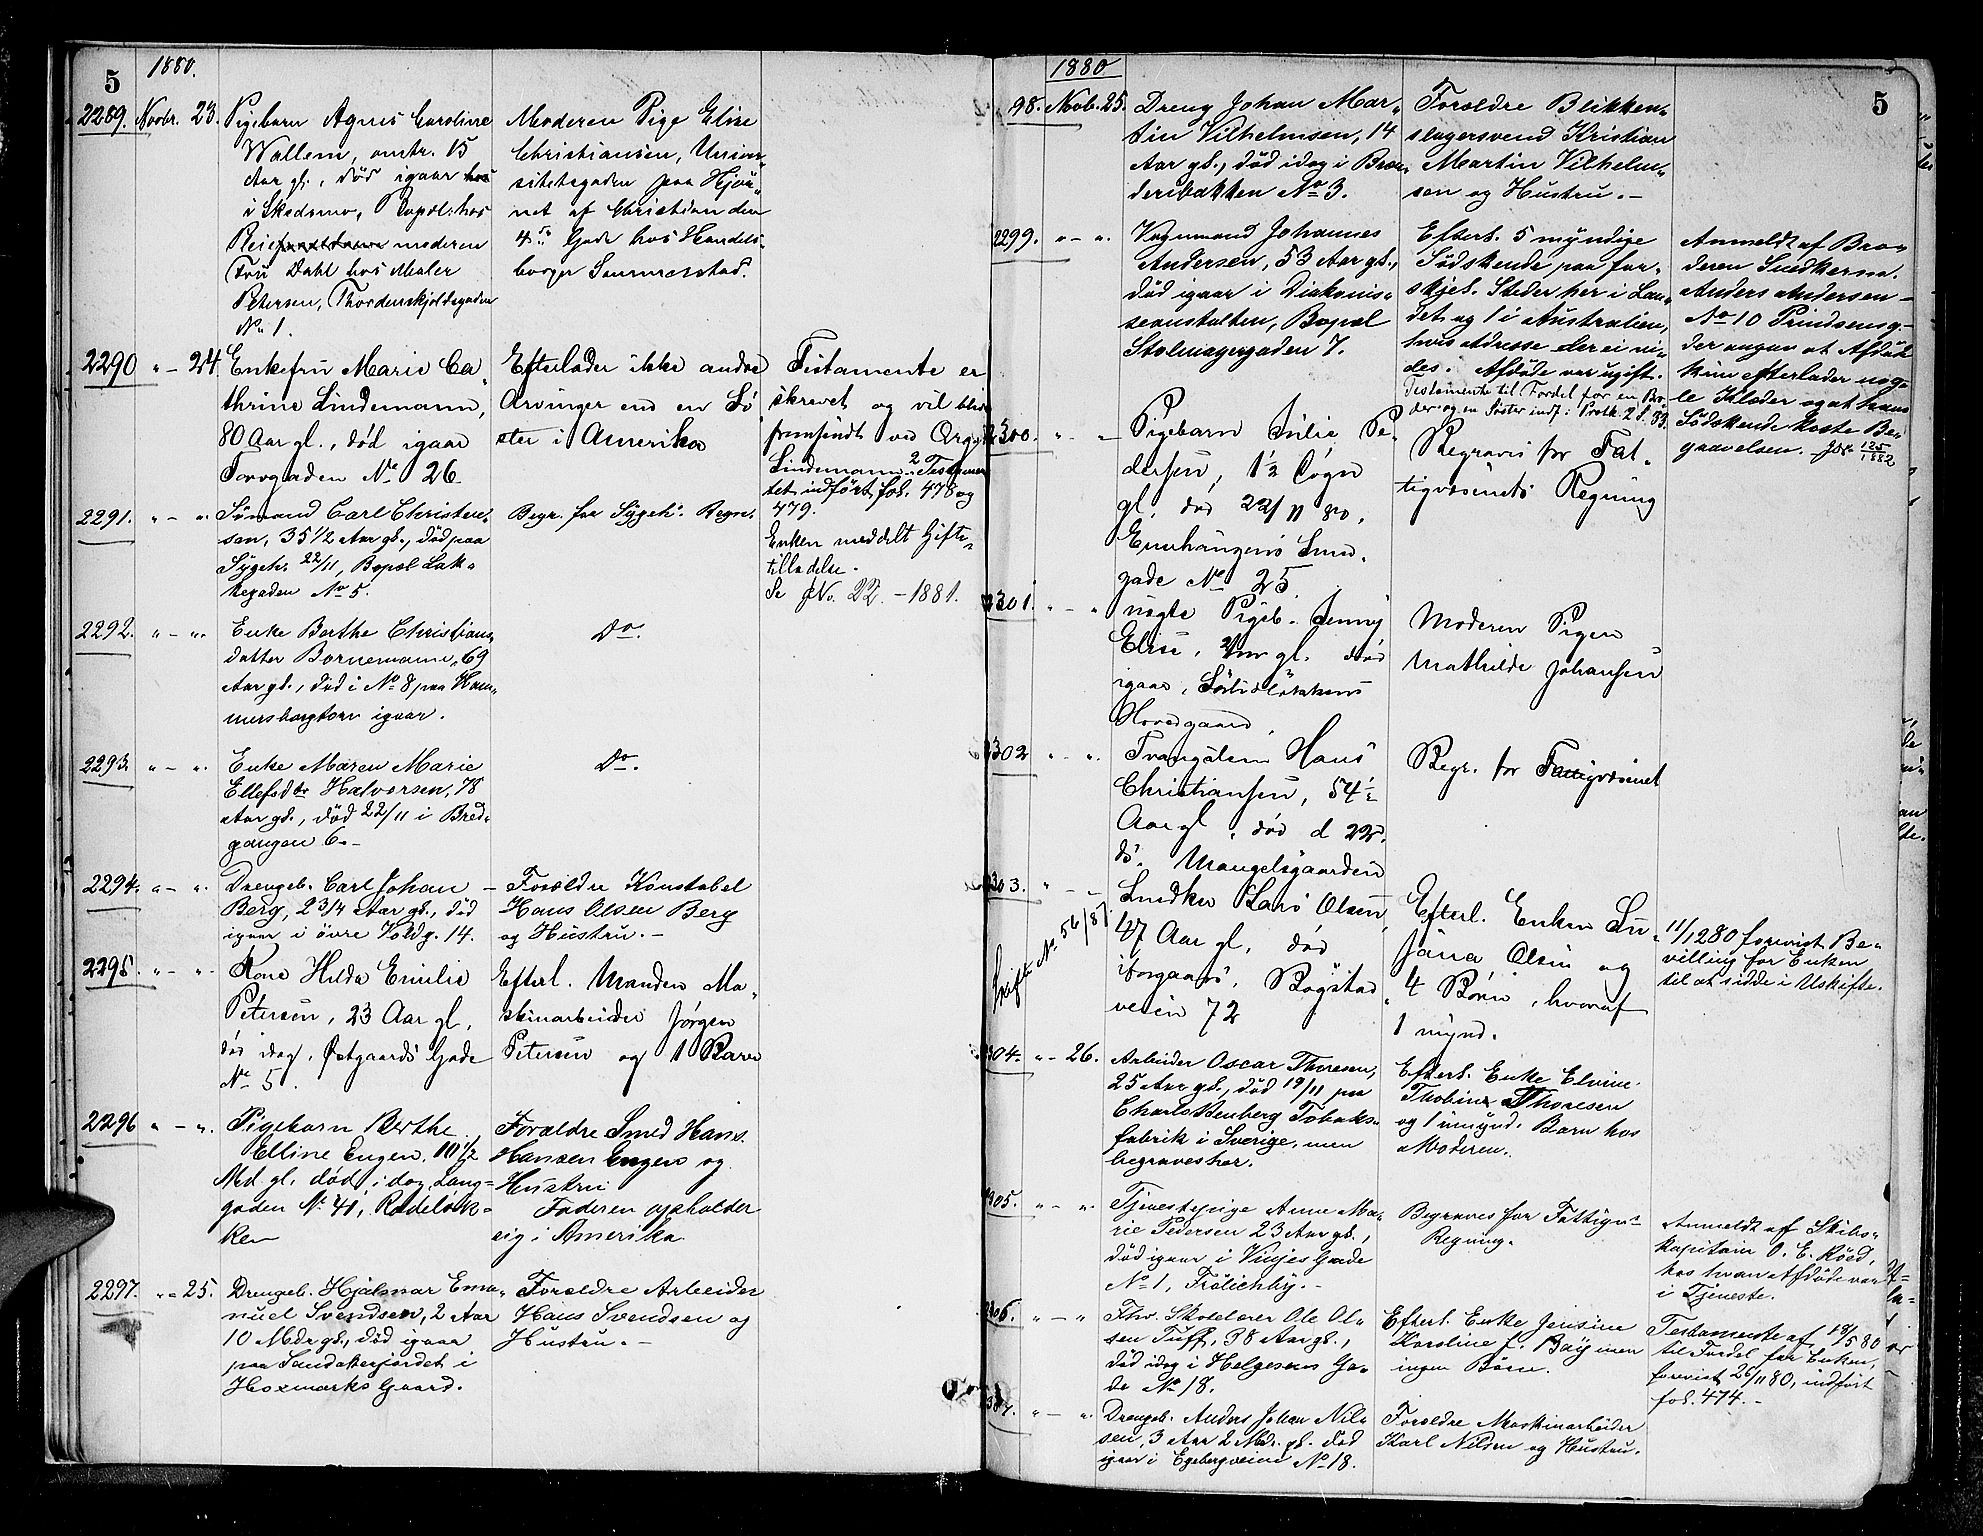 5
1880.
2289. Novbr. 23.
Pigebarn Agnes Caroline
Wallem, omtr. 15
Aar gl., död igaar hos
i Skedsmo, Bopæl: hos
Pleiemoderen
Fru Dahl hos Maler
Petersen, Thordenskjoldsgaden
No 1.
Moderen Pige Elise
Christiansen, Univer-
sitetsgaden paa Hjør-
net af Christian den
4des Gade hos Handels-
borger Sommerstad.
2290 " - 24.
Enkefru Marie Ca-
thrine Lindemann,
80 Aar gl., död igaar
Torvgaden No 26
Efterlader ikke andre
Arvinger end en Sö-
ster i Amerika
Testamente er
skrevet og vil blive
fremsendt ved Org.
Lindemann. Testamen-
tet indført fol. 478 og
479.
2291. " - ".
Sømand Carl Christen-
sen, 35 1/2 Aar gl., död paa
Sygeh. 22/11, Bopæl Lak-
kegaden No 5.
Begr. for Sygeh. Regn.
Enken meddelt Gifte-
tilladelse.
Se No. 22. - 1881.
2292. " - ".
Enke Berthe Christians-
datter Bornemann, 69
Aar gl., död i No 8 paa Ham-
mersborgtorv igaar.
Do.
2293. " - ".
Enke Maren Marie
Ellefsdtr Halvorsen, 78
Aar gl., död 22/11 i Bred-
gangen 6.-
Do.
2294. " - ".
Drengeb. Carl Johan
Berg, 2 3/4 Aar gl., död
igaar i övre Voldg. 14.
Forældre Konstabel
Hans Olsen Berg
og Hustru.-
2295. " - ".
Kone Hulda Emilie
Petersen, 23 Aar gl.,
död idag, Østgaards Gade
No 5.
Efterl. Manden Ma-
skinarbeider Jørgen
Petersen og 1 Barn
2296 " - ".
Pigebarn Berthe
Elline Engen, 10 1/2
Md. gl. død i dag, Lang-
gaden No 41, Rodeløk-
ken
Forældre Smed Hans
Hansen Engen og
Hustru
Faderen opholder
sig i Amerika
2297. " - 25.
Drengeb. Hjalmar Ema-
nuel Svendsen, 2 Aar
10 Mdr gl., död igaar
paa Sandakerjordet i
Hexmarks Gaard.
Forældre Arbeider
Hans Svendsen og
Hustru.-
1880
5
98. Novb. 25.
Dreng Johan Mar-
tin Vilhelmsen, 14
Aar gl., död idag i Bræn-
deribakken No 3.
Forældre Blikken-
slagersvend Kristian
Martin Vilhelm-
sen og Hustru.-
2299. " - ".
Vognmand Johannes
Andersen, 53 Aar gl.,
död igaar i Diakonis-
seanstalten, Bopæl
Stolmagergaden 7.
Efterl. 5 myndige
Södskende paa for-
skjel. Steder her i Lan-
det og 1 i Australien,
hvis Adresse der ei vi-
des. Afdöde var ugift.
Testamente til Fordel for en Bro-
der og en Söster indf. i Protk. 2 f. 83
Anmeldt af Bro-
deren Snedkerm.
Anders Andersen
No 10 Prindsensg.
der angav at Afdöde
kun efterlader nog-
le Klæder og at hans
Södskende koste Be-
gravelsen. - Jor. 125/1882
2300. " - "
Pigebarn Julie Pe-
dersen, 1 1/2 Døgn
gl, død 22/11 80,
Enerhaugens Smed-
gade No 25
Begraves for Fat-
tigvæsenets Regning
2301. " - "
uægte Pigeb. Jenny
Elise, 2 Aar gl. død
igaar, Sørlidløkkens
Hovedgaard
Moderen Pigen
Mathilde Johansen
2302 " - ".
Tvangslem Hans
Christiansen, 54 1/2
Aar gl, død d 22d
ds. Mangelsgaarden
Begr. for Fattigvæsenet
2303. " -
Skifte No 56/87.
Snedker Lars Olsen,
47 Aar gl, død
iforgaars, Bogstad
veien 72
Efterl. Enken Su-
sanna Olsen og
4 Børn, hvoraf
1 mynd.
11/12 80 forevist Be-
villing for Enken
til at sidde i Uskifte.
2304. " - 26.
Arbeider Oscar Thoresen,
25 Aar gl., död 19/11 paa
Charlottenberg Tobaks-
fabrik i Sverige, men
begraves her.
Efterl. Enke Elvine
Thobine Thoresen
og 1 umynd. Barn hos
Moderen.
2305. " - "
Tjenestepige Anne Ma-
rie Pedersen 23 Aar gl.,
död igaar i Vinjes Gade
No 1, Frölichby.-
Begraves for Fattigv.
Regning.
Anmeldt af Skibs-
kapitain O. E. Röed,
hos hvem Afdöde var
i Tjeneste.
2306. " - "
Fhv. Skolelærer Ole Ol-
sen Tuft, 38 Aar gl.,
död idag i Helgesens Ga-
de No 18.
Efterl. Enke Jensine
Karoline f. Bay men
ingen Børn.
Testamente af 18/5 80
til Fordel for Enken,
forevist 26/11 80, indført
fol. 474.-
2307. " - "
Drengeb. Anders Johan Nil-
sen, 3 Aar 2 Mdr. gl. död
igaar i Egebergveien No 18.
Forældre Maskinarbeider
Karl Nilsen og Hustru.